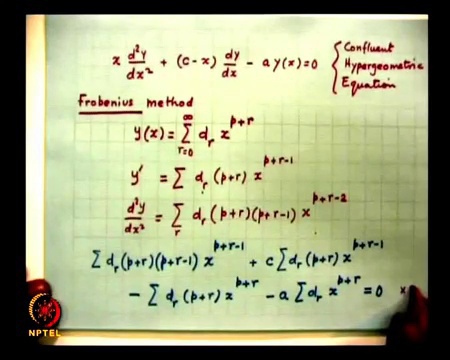 x d²y/dx² + (c-x) dy/dx - a y(x) = 0 { Confluent Hypergeometric Equation
Frobenius method
y(x) = Σ_{r=0}^{∞} d_r x^{p+r}
y' = Σ d_r (p+r) x^{p+r-1}
d²y/dx² = Σ_r d_r (p+r)(p+r-1) x^{p+r-2}
Σ d_r (p+r)(p+r-1) x^{p+r-1} + c Σ d_r (p+r) x^{p+r-1}
- Σ d_r (p+r) x^{p+r} - a Σ d_r x^{p+r} = 0 x
NPTEL